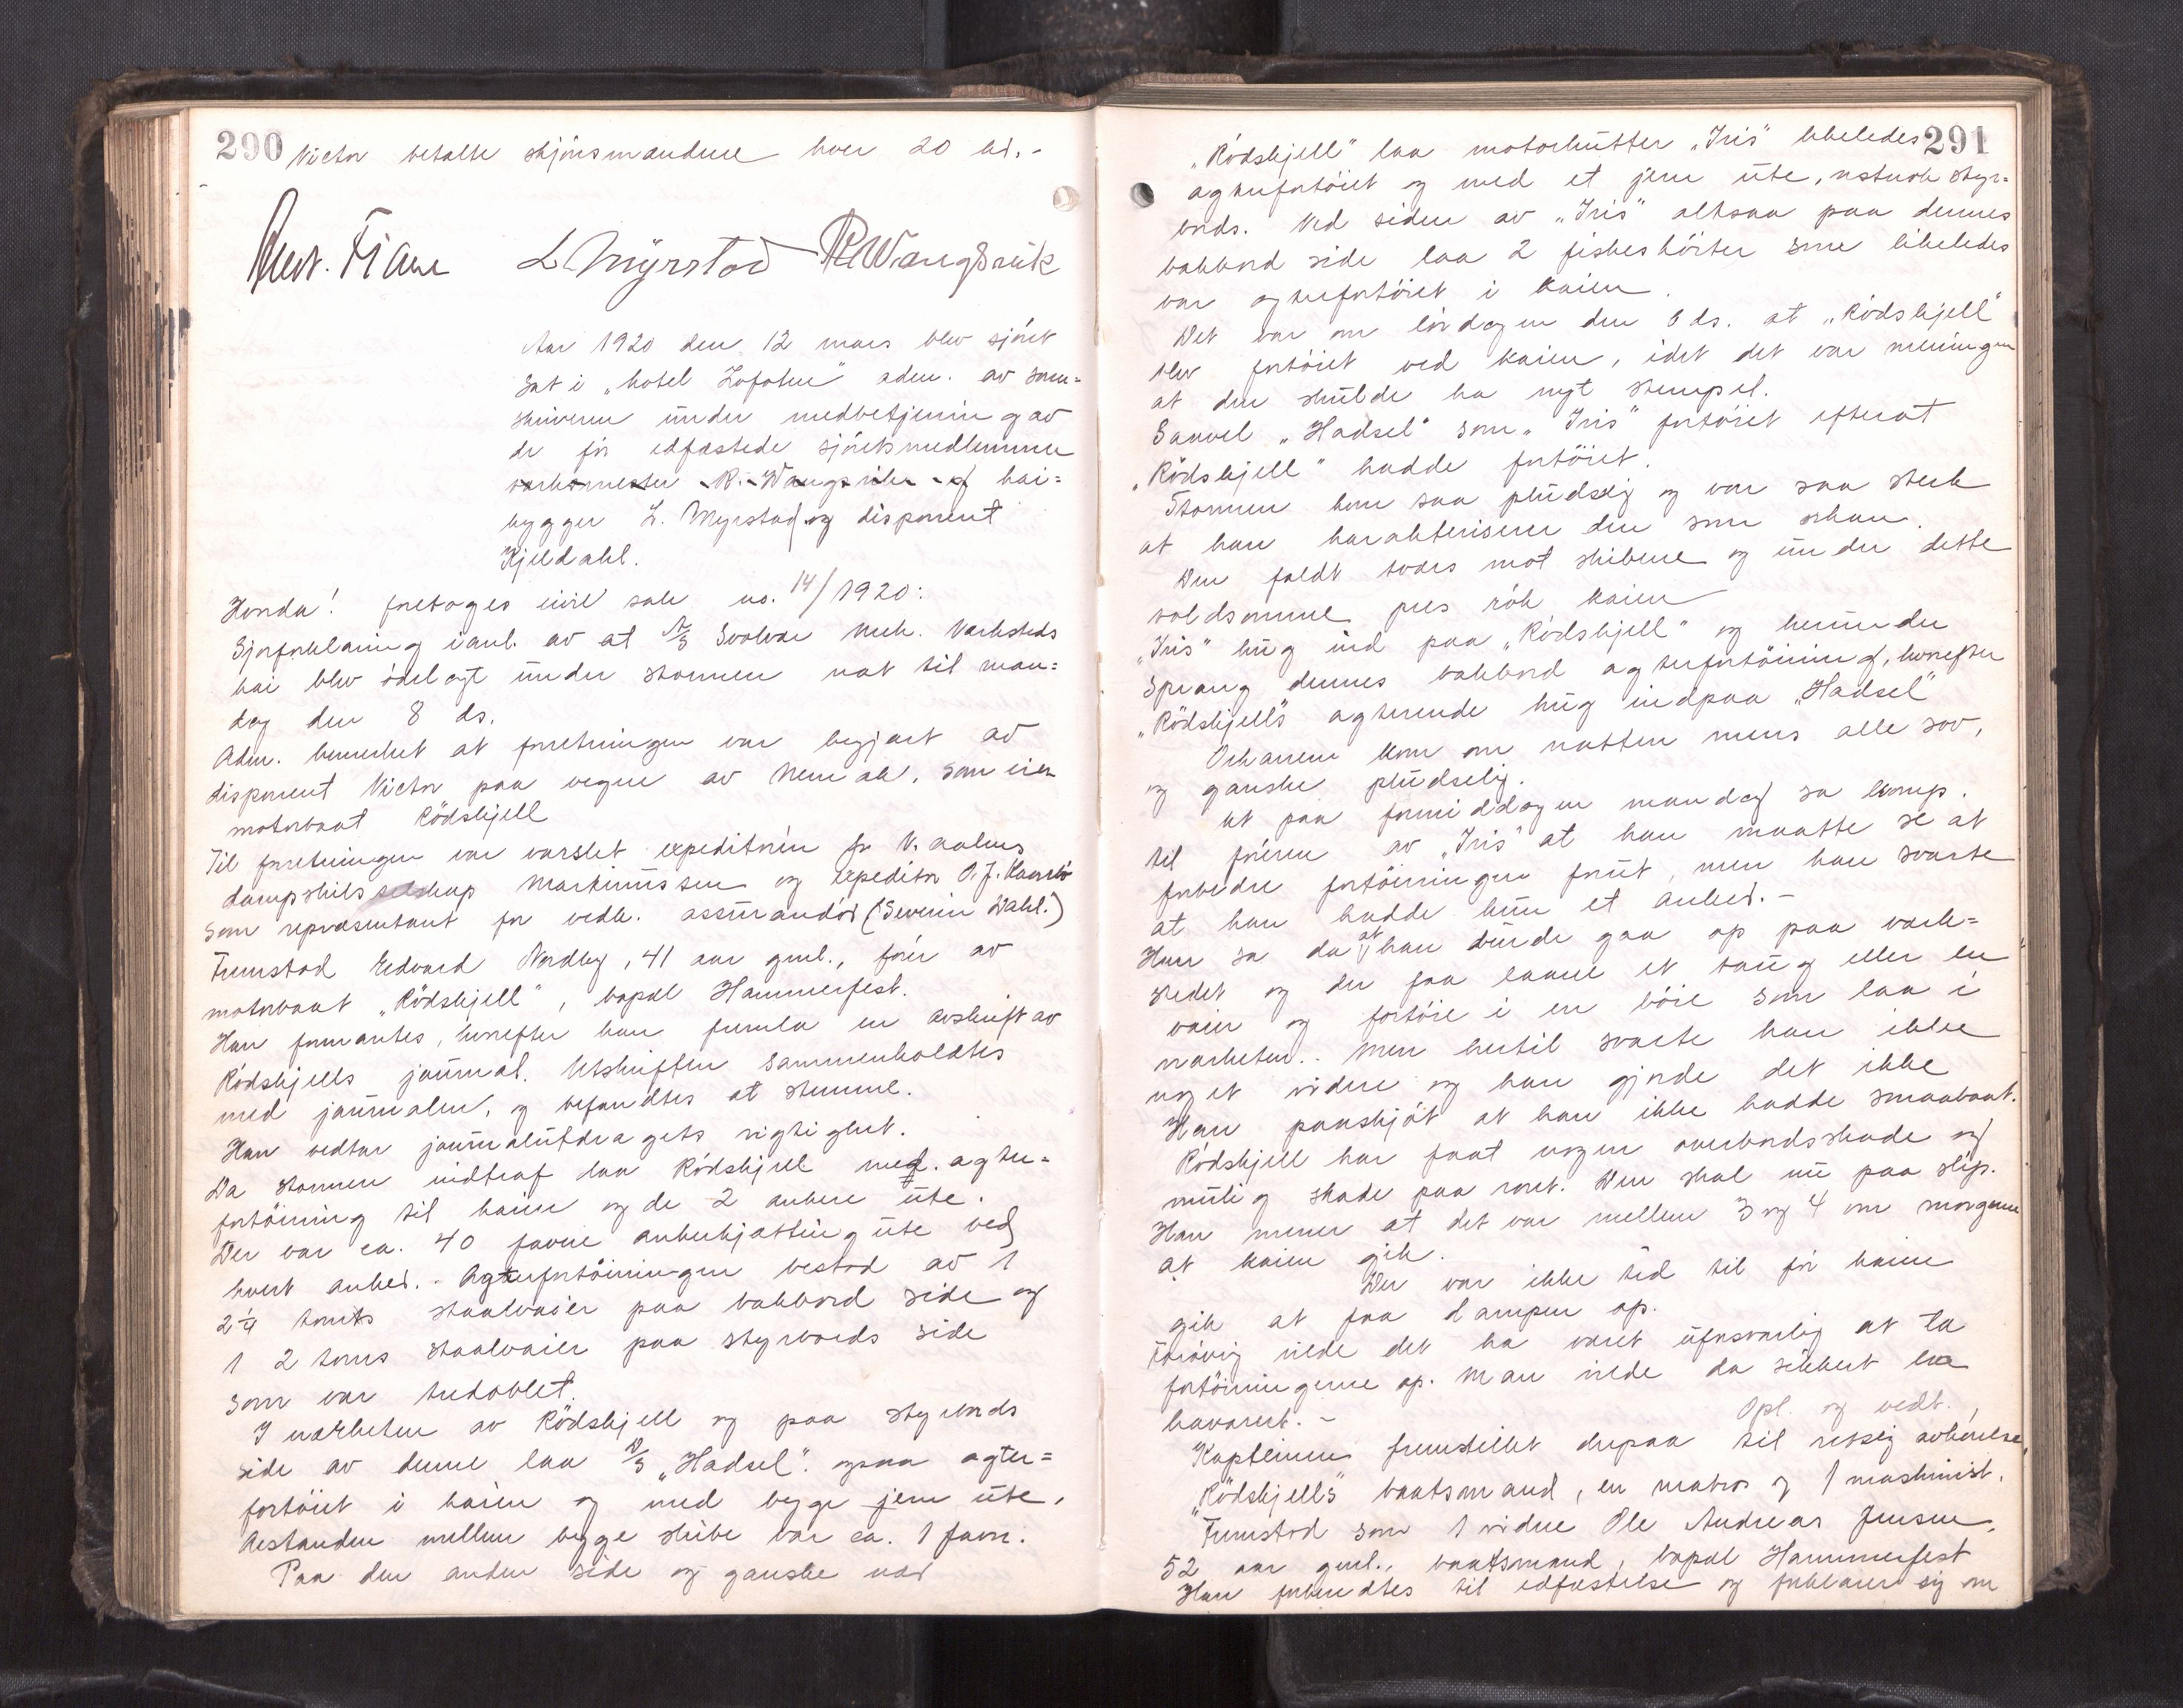 290 Victor betalte skjönsmændene hver 20 kr. -
L Myrstad R Wangsvik
Aar 1920 den 12 mars blev sjöret
sat i „hotel Lofoten" adm. av soren=
skriveren under medbetjening av
de för edfæstede sjöretsmedlemmer
verksmester R. Wangsvik og kai=
bygger L. Myrstad og disponent
Kjeldahl.
Hvorda! foretoges civil sak no. 14/1920:
Sjøforklaring i anl. av at A/S Svolvær mek. Verksteds
kai blev ödelagt under stormen nat til man=
dag den 8 ds.
Adm. bemerket at forretningen var begjært av
disponent Victor paa vegne av Nem ak. som eier
motorbaat Rödskjell
Til forretningen var varslet expeditören for V. aalens
dampskibsselskap Martinussen og expeditör O. J. Kaarbö
som repræsentant for vedk. assurandör (Severin Dahl.)
Fremstod Edvard Nordby, 41 aar gml., förer av
motorbaat „Rödskjell", bopæl Hammerfest.
Han formantes, hvorefter han fremla en avskrift av
Rödskjells journal. Utskriften sammenholdtes
med journalen, og befandtes at stemme.
Han vedtar journalutdragets rigtighet.
Da stormen indtraf laa Rödskjell med agter=
fortöining til kaien og de 2 ankere ute.
Der var ca. 40 favne ankerkjætting ute ved
hvert anker. Agterfortöiningen bestod av 1
2 1/4 toms staalvaier paa babbord side og
1 2 toms staalvaier paa styrbords side
som var tredoblet.
I nærheten av Rödskjell og paa styrbords
side av denne laa D/S „Hadsel". ogsaa agter=
fortöiet i kaien og med begge jern ute.
Avstanden mellem begge skibe var ca. 1 favn.
Paa den anden side og ganske nær
291
„Rödskjell" laa motorkutter „Iris" likeledes
agterfortöiet og med et jern ute, nstnok styr=
bords. Ved siden av „Iris" altsaa paa dennes
babbord side laa 2 fiskesköiter som likeledes
var agterfortöiet i kaien.
Det var om lördagen den 6 ds. at „Rödskjell"
blev fortöiet ved kaien, idet det var meningen
at den skulde ha nyt stempel.
Saavel „Hadsel" som „Iris" fortöiet efterat
„Rödskjell" hadde fortöiet.
Stormen kom saa pludselig og var saa sterk
at han karakteriserer den som orkan.
Den faldt tvers mot skibene og under dette
voldsomme pres rök kaien
„Iris" hug ind paa „Rödskjell" og herunder
sprang dennes babbord agterfortöining, hvorefter
„Rödskjell"s agterende hug indpaa „Hadsel"
Orkanen kom om natten mens alle sov,
og ganske pludselig.
At paa formiddagen mandag sa komp.
til föreren av „Iris" at han maatte se at
forbedre fortöiningen forut, men han svarte
at han hadde kun et anker. -
Han sa da at han burde gaa op paa verk=
stedet og der faa laane et taug eller en
vaier og fortöie i en böie som laa i
nærheten. Men hertil svarte han ikke
noget videre og han gjorde det ikke
Han paaskjöt at han ikke hadde smaabaat.
Rödskjell har faat nogen overbordsskade og
mulig skade paa roret. Den skal nu paa slip.
Han mener at det var mellem 3 og 4 om morgenen
at kaien gik.
Der var ikke tid til för kaien
gik at faa dampen op.
Iövrig vilde det ha været uforsvarlig at ta
fortöiningerne op. Man vilde da sikkert ha
havarert. -
Opl. og vedt.
Kapteinen fremstillet derpaa til retslig avhörelse
„Rödskjell"s baatsmand, en matros og 1 maskinist.
Fremstod som 1 vidne Ole Andreas Jensen,
52 aar gml., baatsmand, bopæl Hammerfest
Han forberedtes til edfæstelse og forklarer sig om